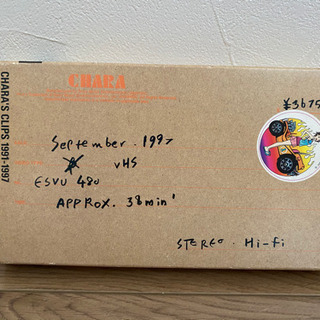 CHARA'S CLIPS 1991-1997
CHARA
¥3675
September. 1997
VHS
ESVU 480
APPROX. 38min'
STEREO. Hi-fi